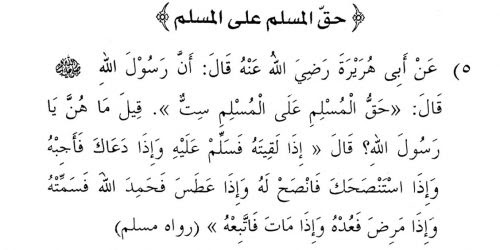 ﴿ حقّ المسلم على المسلم ﴾
٥) عَنْ أَبِى هُرَيْرَةَ رَضِيَ اللهُ عَنْهُ قَالَ: أَنَّ رَسُوْلَ اللهِ ﷺ
قَالَ: «حَقُّ الْمُسْلِمِ عَلَى الْمُسْلِمِ سِتٌّ ». قِيلَ مَا هُنَّ يَا
رَسُوْلَ اللهِ؟ قَالَ « إذَا لَقِيتَهُ فَسَلِّمْ عَلَيْهِ وَإِذَا دَعَاكَ فَأَجِبْهُ
وَإِذَا اسْتَنْصَحَكَ فَانْصَحْ لَهُ وَإِذَا عَطَسَ فَحَمِدَ اللهَ فَسَمِّتْهُ
وَإِذَا مَرِضَ فَعُدْهُ وَإِذَا مَاتَ فَاتَّبِعْهُ » (رواه مسلم)